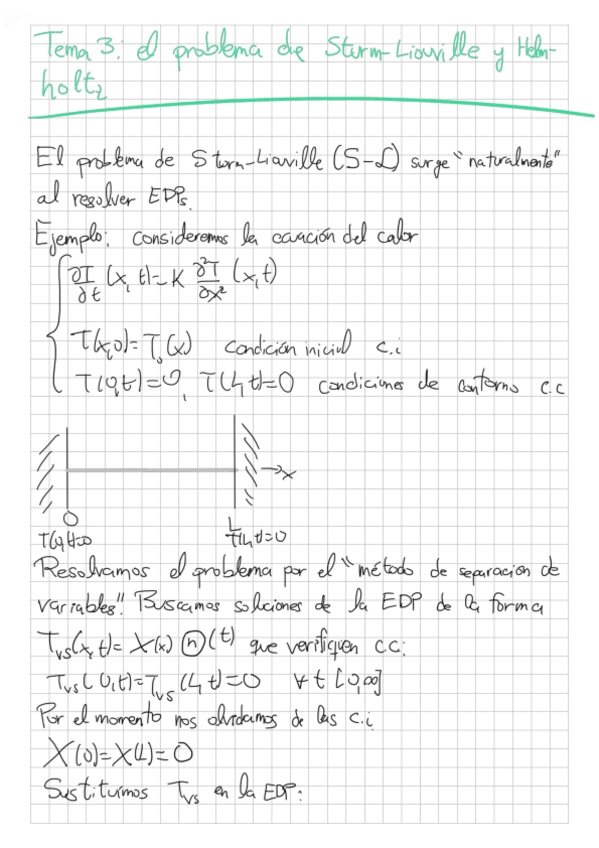 Tema 3: el problema de Sturm-Liouville y Helm-
holtz
El problema de Sturm-Liouville (S-L) surge "naturalmente"
al resolver EDPs.
Ejemplo: consideremos la ecuación del calor
∂T/∂t (x,t) = K ∂²T/∂x² (x,t)
T(x,0) = T₀(x) condición inicial c.i
T(0,t) = 0, T(L,t) = 0 condiciones de contorno c.c
→x
0 L
T(0,t)=0 T(L,t)=0
Resolvamos el problema por el "método de separación de
variables". Buscamos soluciones de la EDP de la forma
Tvs(x,t) = X(x) Ⓗ(t) que verifiquen c.c:
Tvs(0,t) = Tvs(L,t) = 0 ∀t [0,∞]
Por el momento nos olvidamos de las c.i
X(0) = X(L) = 0
Sustituimos Tvs en la EDP: